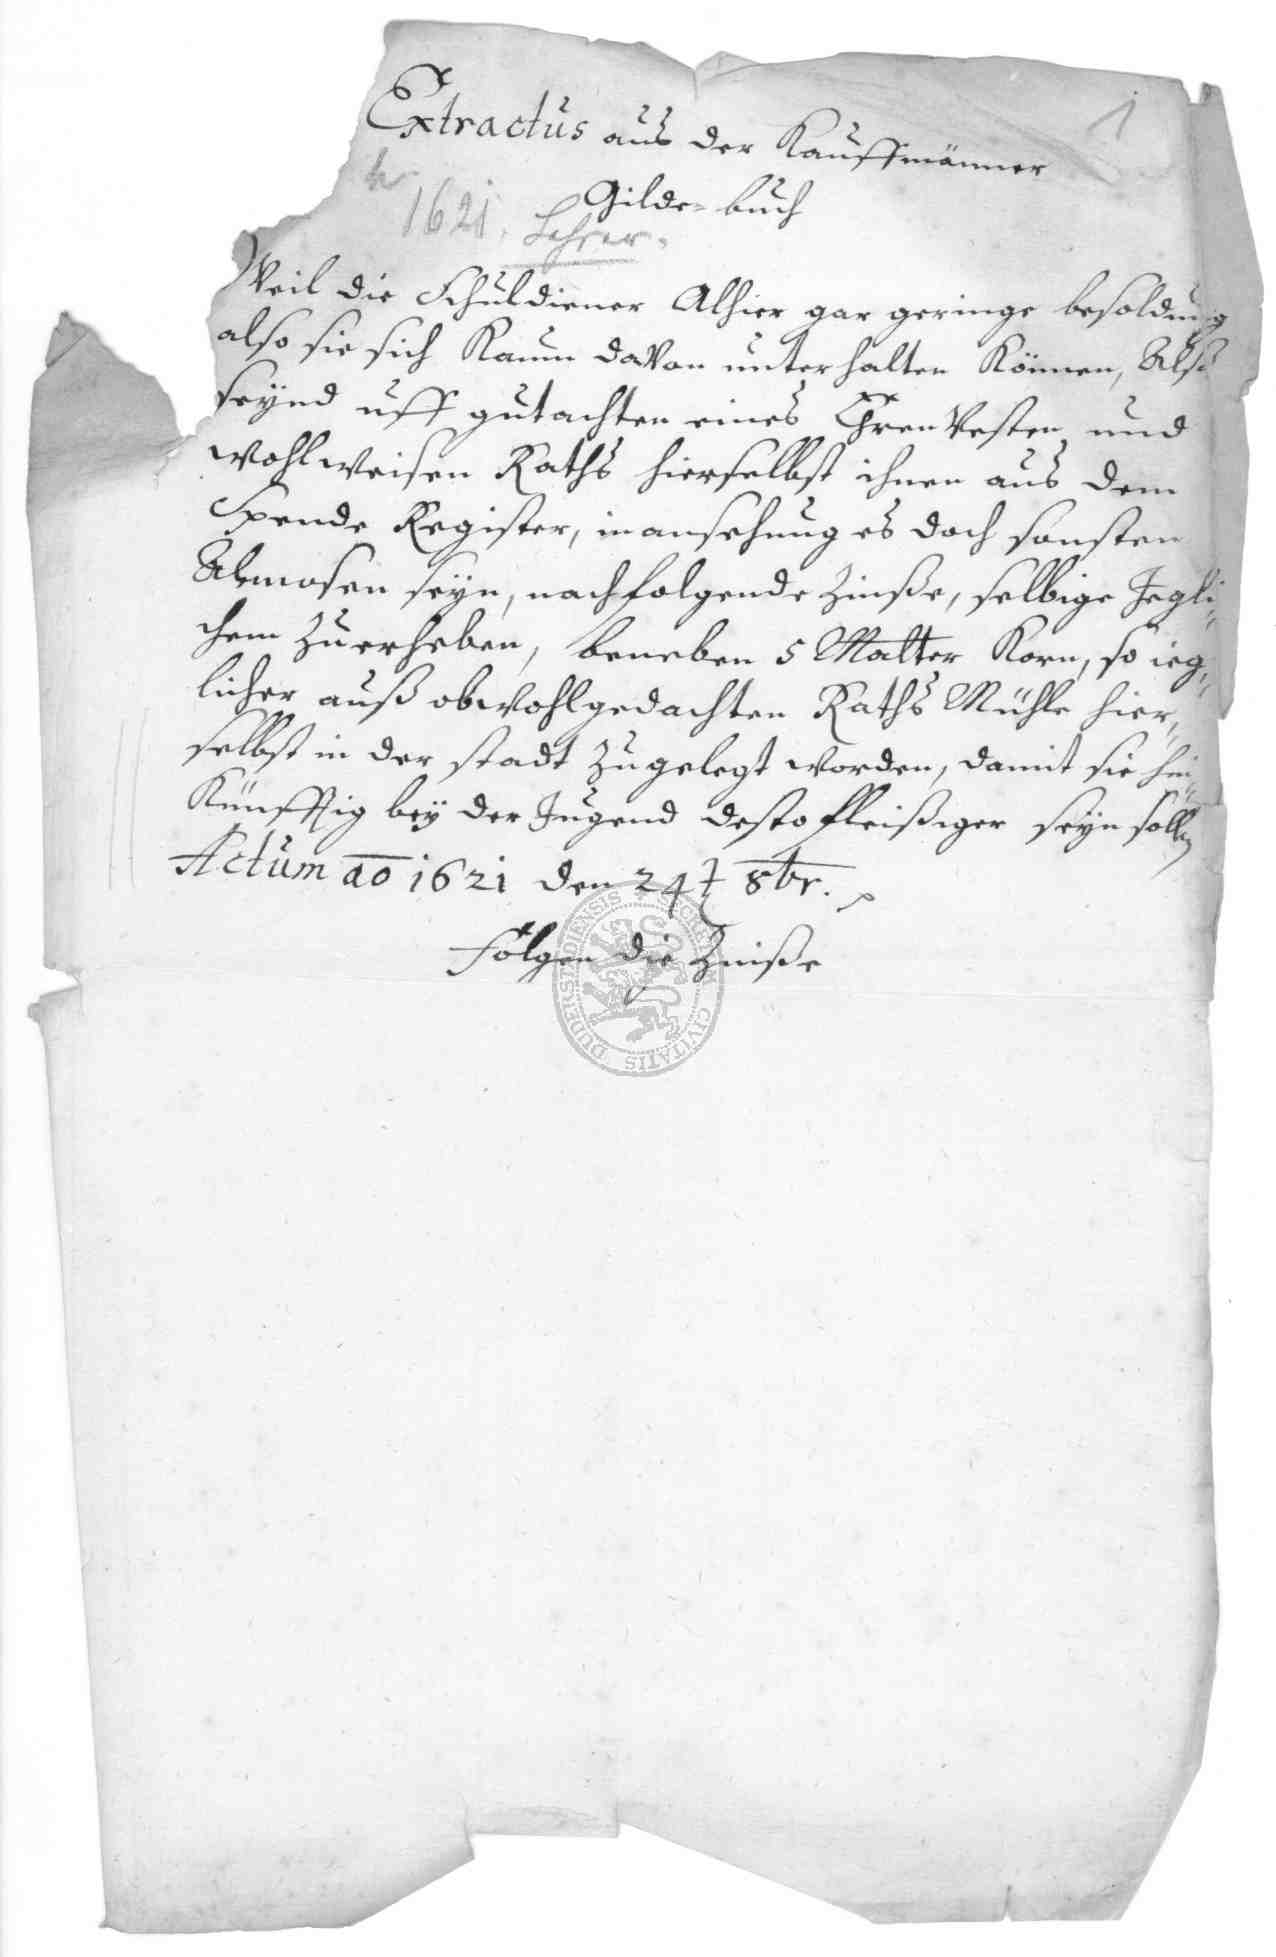 1
Extractus aus der Kauffmänner
Gilde- buch
1621. Lehrer.
Weil die Schuldiener Alhier gar geringe besoldung
also sie sich Kaum davon unterhalten Können, Alß
seynd uff gutachten eines EhrenVesten und
wohlweisen Raths hierselbst ihnen aus dem
Spende Register, in ansehung es doch sonsten
Almosen seyn, nachfolgende Zinße, selbige Jegli-
chem Zuerheben, beneben 5 Malter Korn, so ieg-
licher auß obwohlgedachten Raths Mühle hier-
selbst in der stadt Zugelegt worden, damit sie hin-
Künfftig bey der Jugend desto fleißiger seyn sollen
Actum ao 1621 den 24t 8br.
Folgen die Zinße
SECRETUM CIVITATIS DUDERSTADIENSIS